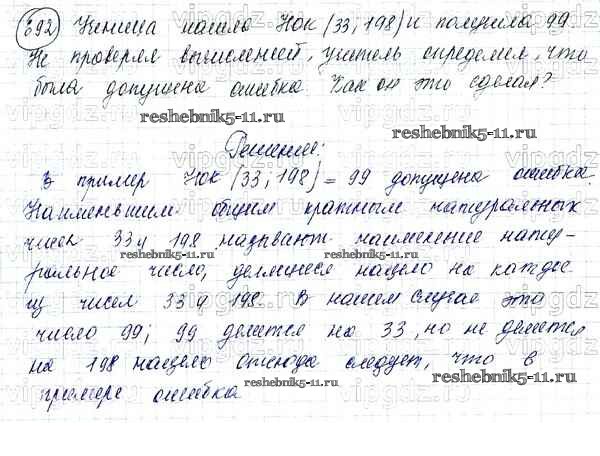 692 Ученица нашла НОК (33, 198) и получила 99.
Не проверяя вычислений, учитель определил, что
была допущена ошибка. Как он это сделал?
reshebnik5-11.ru
Решение:
В пример НОК (33, 198) = 99 допущена ошибка.
Наименьшим общим кратным натуральных
чисел 33 и 198 называют наименьшее нату-
ральное число, делящиеся нацело на каждое
reshebnik5-11.ru
из чисел 33 и 198. В нашем случае это
число 99; 99 делится на 33, но не делится
на 198 нацело. Отсюда следует, что в
примере ошибка
reshebnik5-11.ru
reshebnik5-11.ru